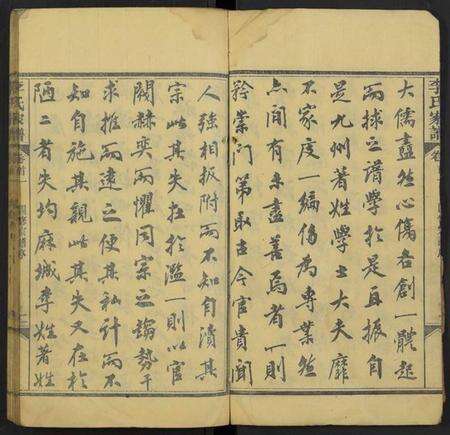 李氏家譜
卷首
大儒盡然心傷各創一體起
而拯之譜學於是再振自
是九州著姓學士大夫靡
不家度一編侈為專業然
其間有未盡善焉者一則
矜崇門第取古今官貴聞
人強相扳附而不知自瀆其
宗此其失在於濫一則以官
閥赫奕而懼同宗之
求推而遠之使其私計而不
知自施其親此其失又在於
陋二者失均麻城李姓著姓
李氏家譜
卷首